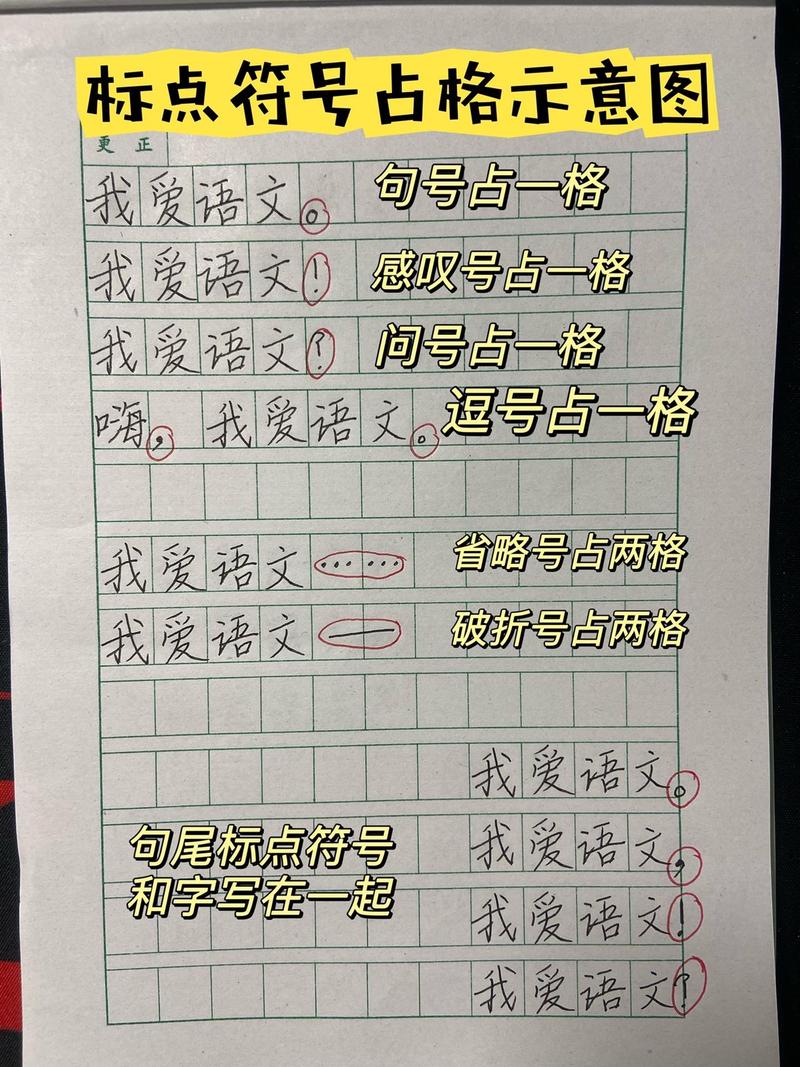 标点符号占格示意图
更正
我爱语文。 句号占一格
我爱语文！ 感叹号占一格
我爱语文？ 问号占一格
嗨，我爱语文。 逗号占一格
我爱语文…… 省略号占两格
我爱语文—— 破折号占两格
我爱语文。
句尾标点符号
和字写在一起
我爱语文，
我爱语文！
我爱语文？